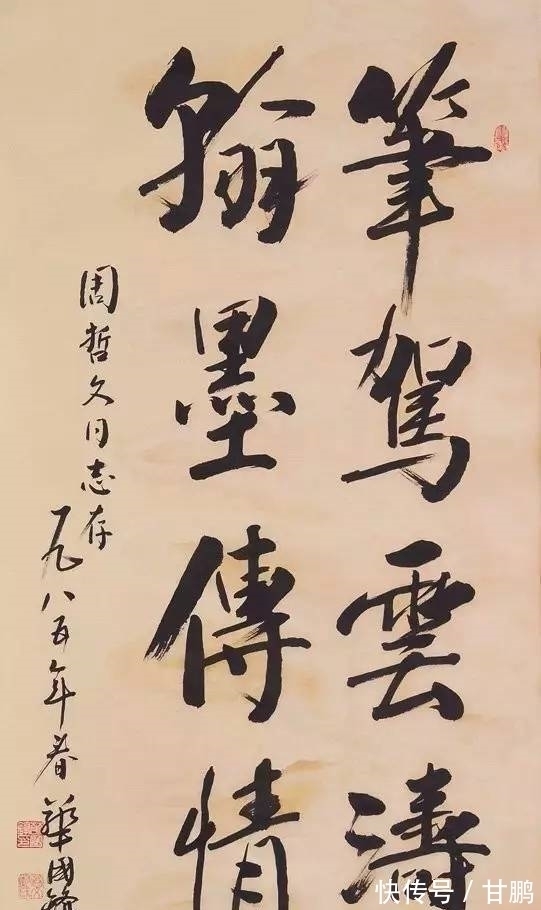 筆駕雲濤
翰墨傳情
周哲文同志存
一九八五年春
華國鋒
快传号／甘鹏